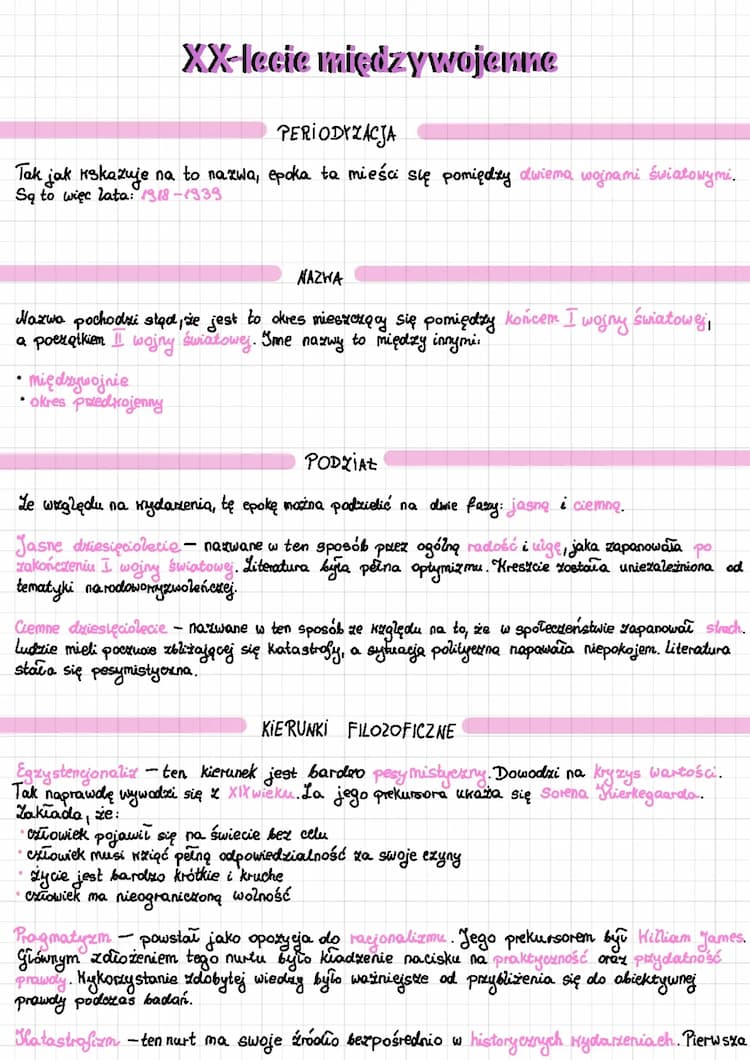 XX-lecie międzywojenne
PERIODYZACJA
Tak jak wskazuje na to nazwa, epoka ta mieści się pomiędzy dwiema wojnami światowymi.
Są to więc lata: 1918-1939
NAZWA
Nazwa pochodzi stąd, że jest to okres mieszczący się pomiędzy końcem I wojny światowej,
a początkiem II wojny światowej. Inne nazwy to między innymi:
• międzywojnie
• okres przedwojenny
PODZIAŁ
Ze względu na wydarzenia, tę epokę można podzielić na dwie fazy: jasną i ciemną.
Jasne dziesięciolecie – nazwane w ten sposób przez ogólną radość i ulgę, jaka zapanowała po
zakończeniu I wojny światowej. Literatura była pełna optymizmu. Wreszcie została uniezależniona od
tematyki narodowowyzwoleńczej.
Ciemne dziesięciolecie – nazwane w ten sposób ze względu na to, że w społeczeństwie zapanował strach.
Ludzie mieli poczucie zbliżającej się katastrofy, a sytuacja polityczna napawała niepokojem. Literatura
stała się pesymistyczna.
KIERUNKI FILOZOFICZNE
Egzystencjonalizm – ten kierunek jest bardzo pesymistyczny. Dowodzi na kryzys wartości.
Tak naprawdę wywodzi się z XIX wieku. Za jego prekursora uważa się Sorena Kierkegaarda.
Zakłada, że:
• człowiek pojawił się na świecie bez celu
• człowiek musi wziąć pełną odpowiedzialność za swoje czyny
• życie jest bardzo krótkie i kruche
• człowiek ma nieograniczoną wolność
Pragmatyzm – powstał jako opozycja do racjonalizmu. Jego prekursorem był William James.
Głównym założeniem tego nurtu było kładzenie nacisku na praktyczność oraz przydatność
prawdy. Wykorzystanie zdobytej wiedzy było ważniejsze od przybliżenia się do obiektywnej
prawdy podczas badań.
Katastrofizm – ten nurt ma swoje źródło bezpośrednio w historycznych wydarzeniach. Pierwsza